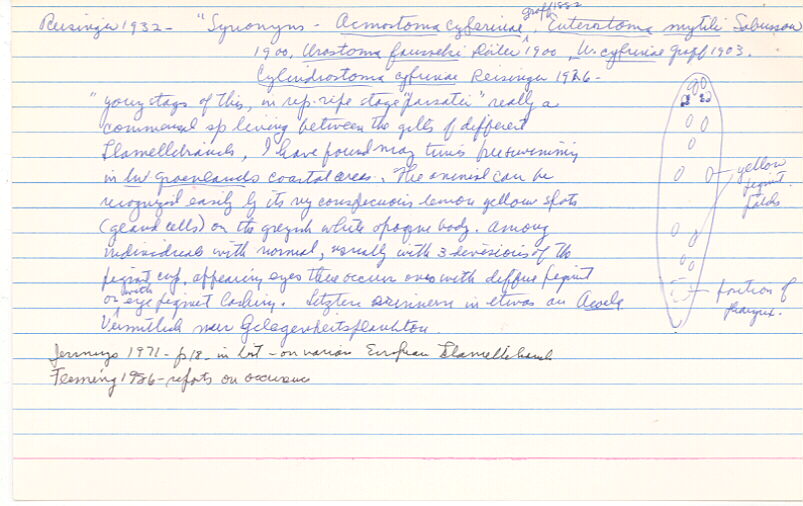 Reisinger 1932 - "Synonyms - Acmostoma cyprinae graff 1882, Enterostoma mytili Sabussow
1900, Urostoma Dörler 1900, U. cyprinae graff 1903.
Cylindrostoma cyprinae Reisinger 1926 -
" young stags of this, in rep. ripe stage "parasitic" really a
commensal sp living between the gills of different
Llamellibranchs, I have found many times freeswimming
in groenlands coastal areas. The animal can be
recognized easily by its very conspicuous lemon yellow spots
(gland cells) on the greyish white opaque body. Among
individuals with normal, usually with 3 divisions of the
pigmt cup, appearing eyes there occur ones with diffuse pigmt
or with eye pigmnt lacking. Letztere erinnern in etwas an Acoela
Vermutlich nur Gelegenheitsplankton.
yellow
pigmt.
position of
pharynx.
Jennings 1971 - p18 - in list - on various European Llamellibranchs
Fleming 1986 - reports on occurence